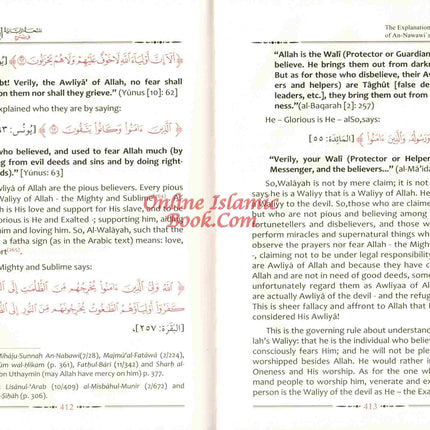 ﴿أَلَا إِنَّ أَوْلِيَاءَ اللَّهِ لَا خَوْفٌ عَلَيْهِمْ وَلَا هُمْ يَحْزَنُونَ﴾
bt! Verily, the Awliyā' of Allah, no fear shall
on them nor shall they grieve." (Yūnus [10]: 62)
explained who they are by saying:
﴿الَّذِينَ ءَامَنُوا وَكَانُوا يَتَّقُونَ﴾ [يُونُس:
who believed, and used to fear Allah much (by
ng from evil deeds and sins and by doing right-
ds)." (Yūnus: 63]
wliyā of Allah are the pious believers. Every pious
Waliyy of Allah - the Mighty and Sublime
h is His love and support for His slave, and to be
rious is He and Exalted -; supporting him, aiding
im and loving him. So, Al-Walāyah, such that the
a fatha sign (as in the Arabic text) means: love,
ort
Mighty and Sublime says:
﴿اللَّهُ وَلِيُّ الَّذِينَ ءَامَنُوا يُخْرِجُهُم مِّنَ الظُّلُمَاتِ إِلَى
كَفَرُوا أَوْلِيَاؤُهُمُ الطَّاغُوتُ يُخْرِجُونَهُم مِّنَ النُّورِ إِلَى
[البَقَرَة: ٢٥٧].
Mihāju-Sunnah An-Nabawi(7/28), Majmū'al-Fatāwā (2/224),
ūm wal-Hikam (p. 361), Fathul-Bāri (11/342) and Sharh al-
on Uthaymin (may Allah have mercy on him) p. 377.
: Lisānul-'Arab (10/409) al-Misbāhul-Munir (2/672) and
-Sihāh (p. 306).
412
The Explanation
of An-Nawawi's
"Allah is the Walī (Protector or Guardian
believe. He brings them out from darkn
But as for those who disbelieve, their Aw
ers and helpers) are Tāghūt [false dei
leaders, etc.], they bring them out from
ness."(al-Baqarah [2]: 257)
He – Glorious is He – alSo,says:
وَرَسُولُهُ وَالَّذِينَ ءَامَنُوا﴾ [المَائِدَة: ٥٥]
"Verily, your Walī (Protector or Helper
Messenger, and the believers..." (al-Mā'ida
So,Walāyah is not by mere claim; it is not
says he is a Waliyy that is a Waliyy of Allah. He
Waliyy to the devil. SO,those others are claimin
but who are not pious and believing among
fortunetellers and disbelievers, and those
perform miracles and supernatural things wh
observe the prayers nor fear Allah - the Mighty
-, claiming not to be under legal responsibility
are Awliyā of Allah and because they have c
Allah and are not in need of good deeds, some
unfortunately regard them as Awliyaa of All
are actually Awliyā of the devil - and the refug
This is sheer fallacy and affront to Allah that
considered His Awliyā!
This is the governing rule about understan
lah's Waliyy: that he is the individual who believ
consciously fears Him; and he will not be ple
worshipped besides Allah. He would rather in
Oneness and His worship. As for the one wh
mand people to worship him, venerate and ex
person is the Waliyy of the devil as He – the Exa
413
Online Islamic
Book.Com